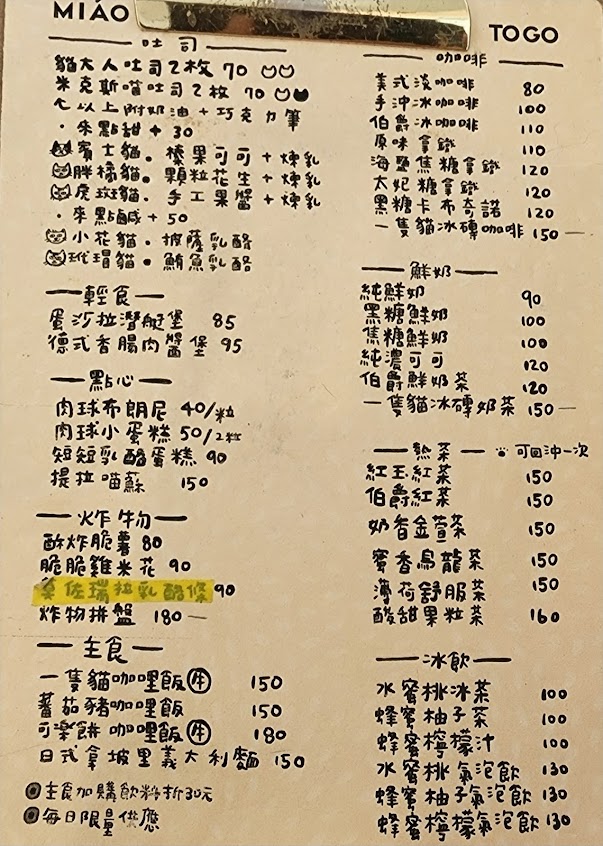 MIÁO
TOGO
吐司
貓大人吐司2枚 70
米克斯喵吐司2枚 70
以上附奶油+巧克力筆
·來點甜+30
賓士貓。榛果可可+煉乳
胖橘貓。顆粒花生+煉乳
虎斑貓。手工果醬+煉乳
·來點鹹+50
小花貓。披薩乳酪
玳瑁貓。鮪魚乳酪
輕食
蛋沙拉潛艇堡 85
德式香腸肉醬堡 95
點心
肉球布朗尼 40/粒
肉球小蛋糕 50/2粒
短短乳酪蛋糕 90
提拉喵蘇 150
炸物
酥炸脆薯 80
脆脆雞米花 90
莫佐瑞拉乳酪條 90
炸物拼盤 180
主食
一隻貓咖哩飯 牛 150
蕃茄豬咖哩飯 150
可樂餅咖哩飯 牛 180
日式拿坡里義大利麵 150
主食加購飲料折30元
每日限量供應
咖啡
美式淡咖啡 80
手沖冰咖啡 100
伯爵冰咖啡 110
原味拿鐵 110
海鹽焦糖拿鐵 120
太妃糖拿鐵 120
黑糖卡布奇諾 120
一隻貓冰磚咖啡 150
鮮奶
純鮮奶 90
黑糖鮮奶 100
焦糖鮮奶 100
純濃可可 120
伯爵鮮奶茶 120
一隻貓冰磚奶茶 150
熱茶 可回沖一次
紅玉紅茶 150
伯爵紅茶 150
奶香金萱茶 150
蜜香烏龍茶 150
薄荷舒服茶 150
酸甜果粒茶 160
冰飲
水蜜桃冰茶 100
蜂蜜柚子茶 100
蜂蜜檸檬汁 100
水蜜桃氣泡飲 130
蜂蜜柚子氣泡飲 130
蜂蜜檸檬氣泡飲 130